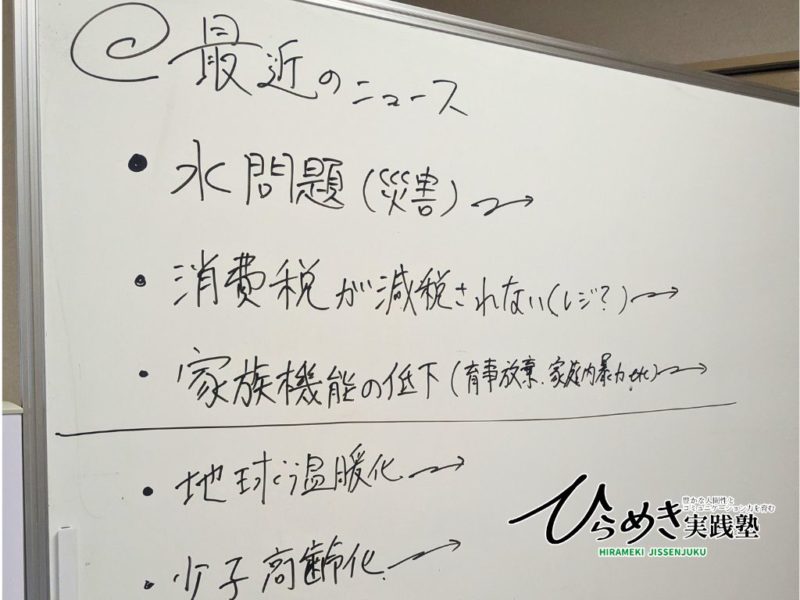 @最近のニュース
・水問題(災害)→
・消費税が減税されない(レジ?)→
・家族機能の低下(育事放棄、家庭内暴力etc)→
・地球温暖化→
・少子高齢化→
豊かな人間性と
コミュニケーション力を育む
ひらめき実践塾
HIRAMEKI JISSENJUKU